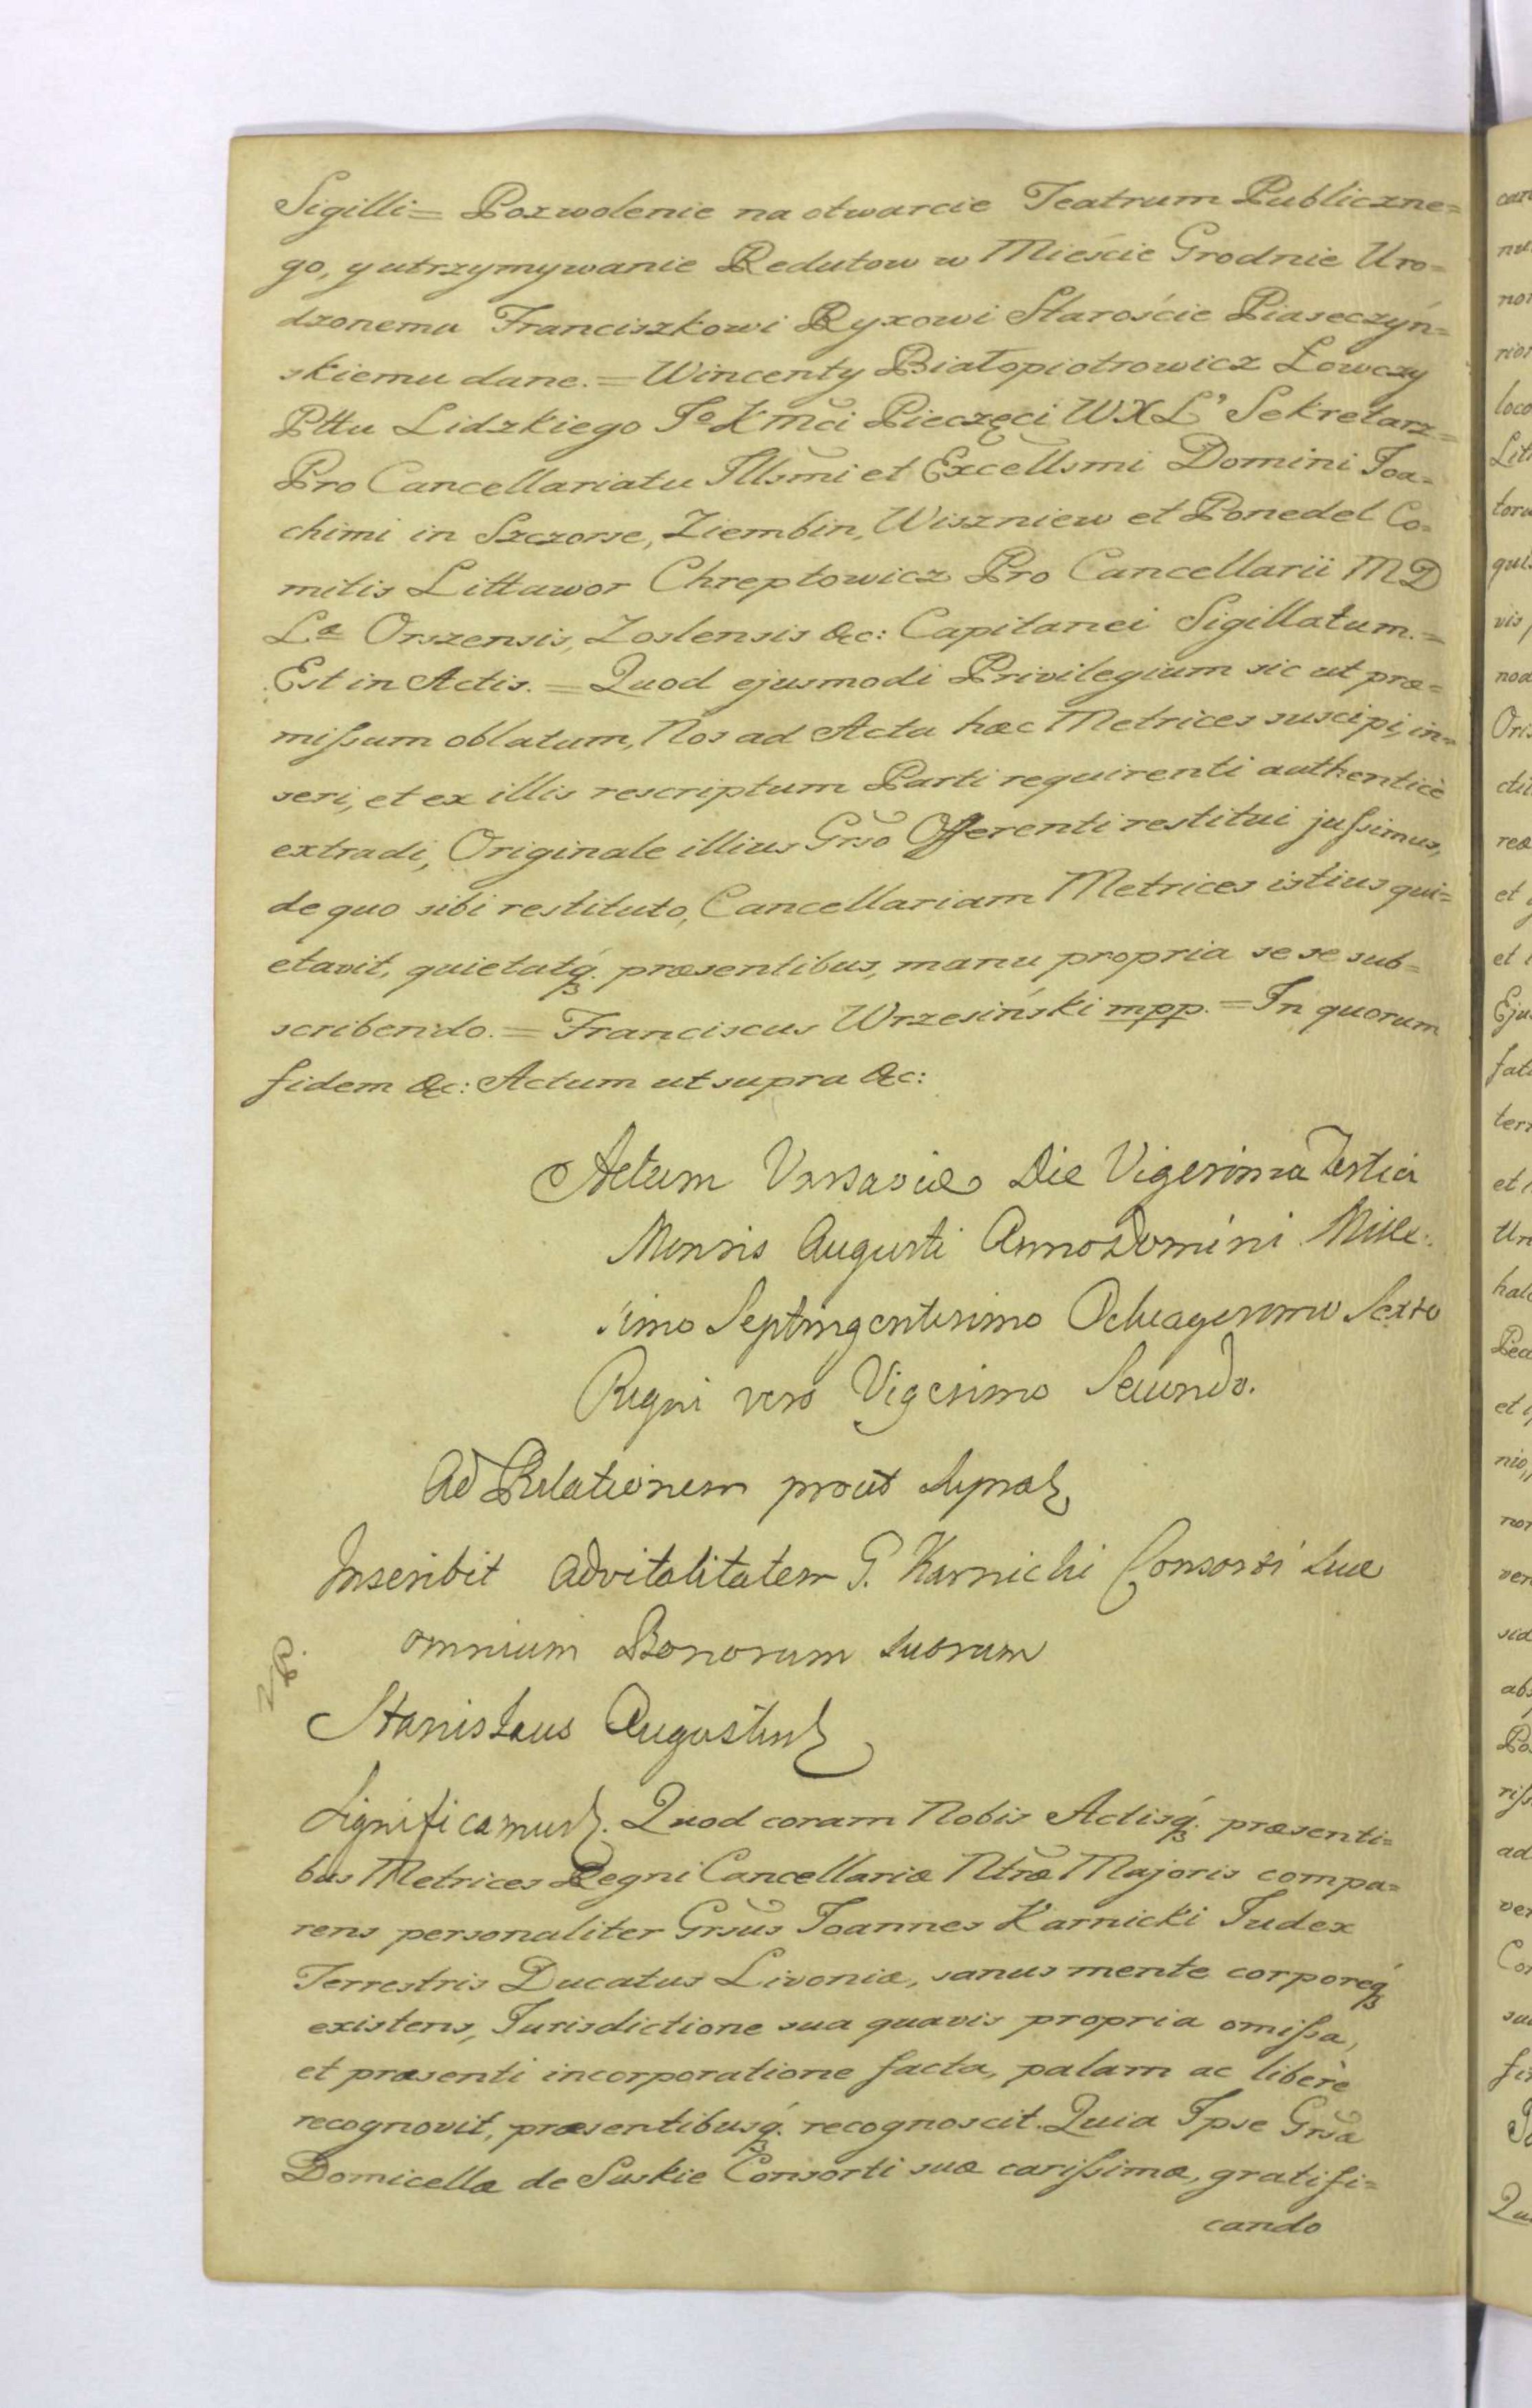 Sigilli= Pozwolenie na otwarcie Teatrum Publiczne=
go, y utrzymywanie Redutow w Mieście Grodnie Uro=
dzonemu Franciszkowi Ryxowi Staroście Piaseczyń=
skiemu dane.= Wincenty Białopiotrowicz Łowczy
Pttu Lidzkiego Jo K Mci Pieczęci WXL' Sekretarz=
Pro Cancellariatu Illsmi et Excellsmi Domini Joa=
chimi in Szczorse, Ziembin, Wiszniew et Ponedel Co=
mitis Littawor Chreptowicz Pro Cancellarii MD
Læ Orszensis, Zoslensis &c: Capitanei Sigillatum.=
Est in Actis.= Quod ejusmodi Privilegium sic ut præ=
missum oblatum, Nos ad Acta hæc Metrices suscipi, in=
seri, et ex illis rescriptum Parti requirenti authenticè
extradi, Originale illius Grso Offerenti restitui jussimus,
de quo sibi restituto, Cancellariam Metrices istius qui=
etavit, quietatq́. præsentibus, manu propria se se sub=
scribendo.= Franciscus Wrzesiński mpp.= In quorum
fidem &c: Actum ut supra &c:
Actum Varsaviæ Die Vigesima Tertia
Mensis Augusti Anno Domini Mille=
simo Septingentesimo Octuagesimo Sexto
Regni vero Vigesimo Secundo.
Ad Relationem prout supra
Inscribit advitalitatem G. Karnicki Consorti suæ
omnium Bonorum suorum
Stanislaus Augustus
Significamus. Quod coram Nobis Actisq́. præsenti=
bus Metrices Regni Cancellariæ Ntræ Majoris compa=
rens personaliter Grsus Joannes Karnicki Judex
Terrestris Ducatus Livoniæ, sanus mente corporeq́
existens, Jurisdictione sua quavis propria omissa,
et præsenti incorporatione facta, palam ac liberè
recognovit, præsentibusq́. recognoscit. Quia Ipse Grsa
Domicella de Suskie Consorti suæ carissimæ, gratifi=
cando